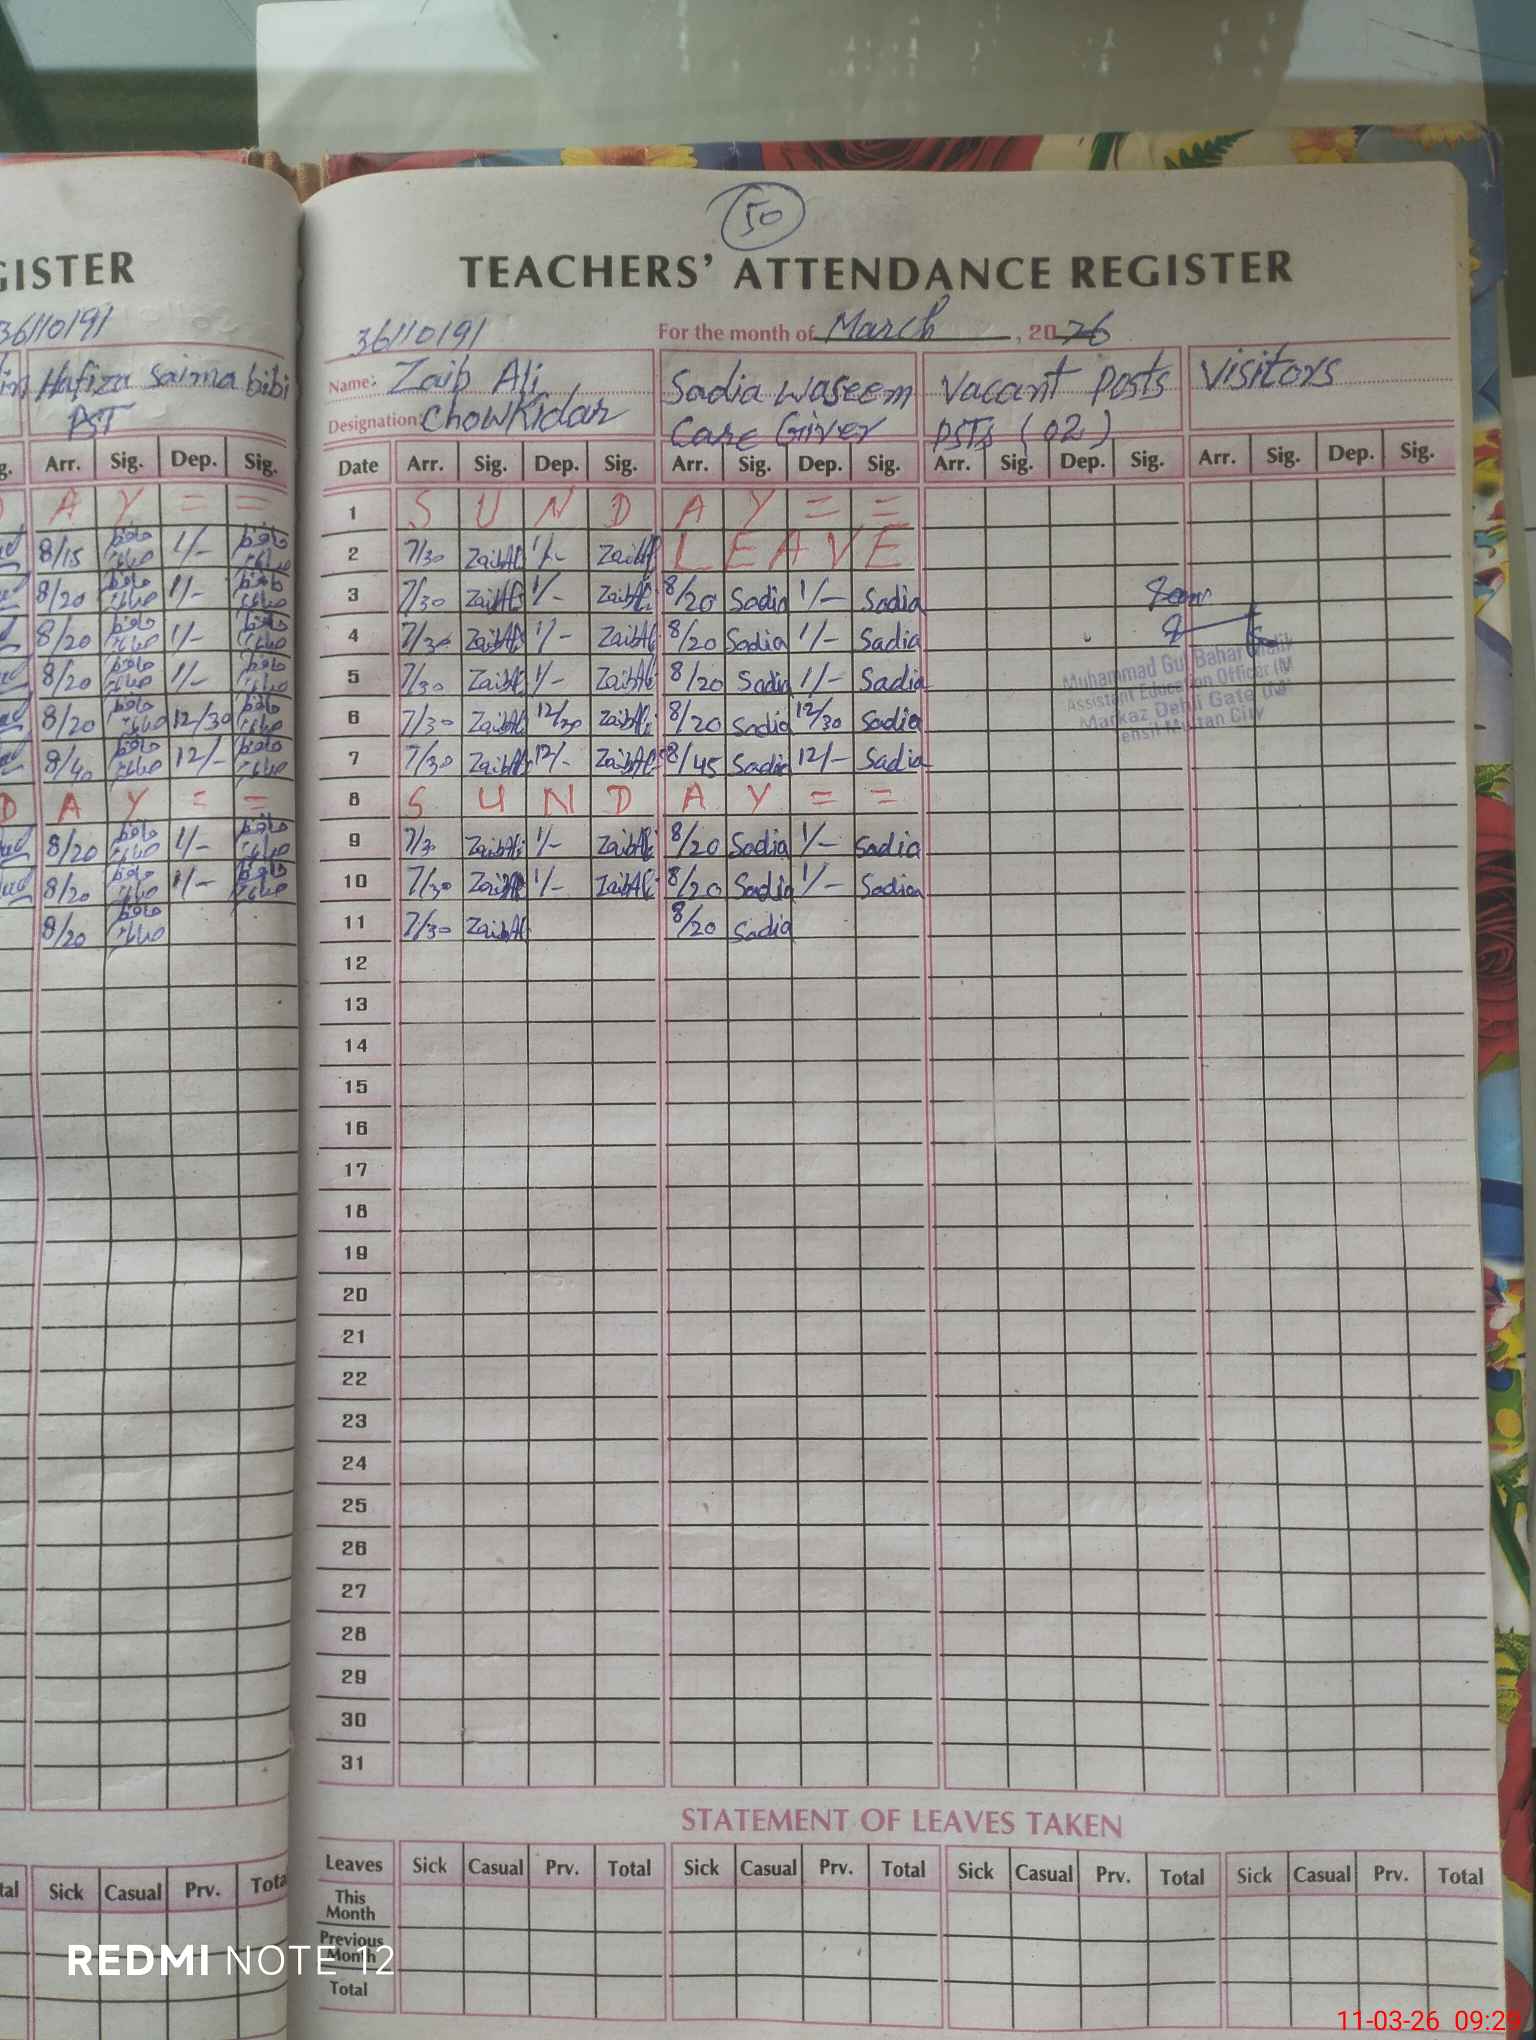 GISTER
36110191
Hafiza Saima bibi
PST
Arr. Sig. Dep. Sig.
D A Y = =
8/15 حافظہ صائمہ 1/- حافظہ صائمہ
8/20 حافظہ صائمہ 1/- حافظہ صائمہ
8/20 حافظہ صائمہ 1/- حافظہ صائمہ
8/20 حافظہ صائمہ 1/- حافظہ صائمہ
8/20 حافظہ صائمہ 12/30 حافظہ صائمہ
8/40 حافظہ صائمہ 12/- حافظہ صائمہ
D A Y = =
8/20 حافظہ صائمہ 1/- حافظہ صائمہ
8/20 حافظہ صائمہ 1/- حافظہ صائمہ
8/20 حافظہ صائمہ
tal Sick Casual Prv. Tota
50
TEACHERS' ATTENDANCE REGISTER
36110191 For the month of March, 2026
Name: Zaib Ali Sadia Waseem Vacant Posts Visitors
Designation: Chowkidar Care Giver PSTs (02)
Date Arr. Sig. Dep. Sig. Arr. Sig. Dep. Sig. Arr. Sig. Dep. Sig. Arr. Sig. Dep. Sig.
1 S U N D A Y = =
2 7/30 ZaibAli 1/- ZaibAli LEAVE
3 7/30 ZaibAli 1/- ZaibAli 8/20 Sadia 1/- Sadia
4 7/30 ZaibAli 1/- ZaibAli 8/20 Sadia 1/- Sadia
5 7/30 ZaibAli 1/- ZaibAli 8/20 Sadia 1/- Sadia
6 7/30 ZaibAli 12/30 ZaibAli 8/20 Sadia 12/30 Sadia
7 7/30 ZaibAli 12/- ZaibAli 8/45 Sadia 12/- Sadia
8 S U N D A Y = =
9 7/30 ZaibAli 1/- ZaibAli 8/20 Sadia 1/- Sadia
10 7/30 ZaibAli 1/- ZaibAli 8/20 Sadia 1/- Sadia
11 7/30 ZaibAli 8/20 Sadia
Muhammad Gul Bahar
Assistant Education Officer (M
Markaz Dehli Gate
Tehsil Multan City
12
13
14
15
16
17
18
19
20
21
22
23
24
25
26
27
28
29
30
31
STATEMENT OF LEAVES TAKEN
Leaves Sick Casual Prv. Total Sick Casual Prv. Total Sick Casual Prv. Total Sick Casual Prv. Total
This Month
Previous Month
Total
REDMI NOTE 12
11-03-26 09:29